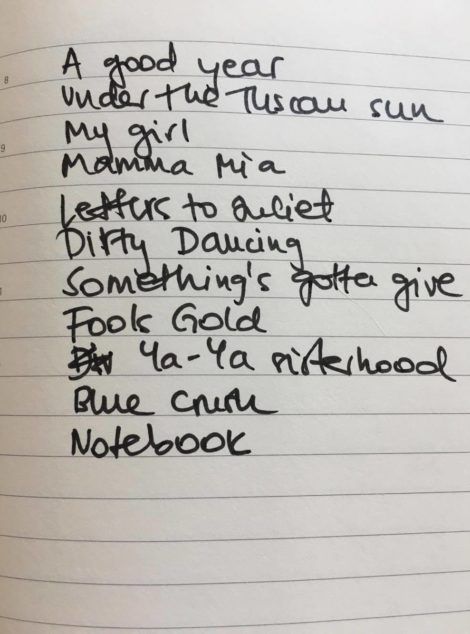 8
A good year
Under the Tuscan sun
My girl
9
Mamma Mia
10
Letters to Juliet
Dirty Dancing
Something's gotta give
Fools Gold
Ya-Ya sisterhood
Blue Crush
Notebook